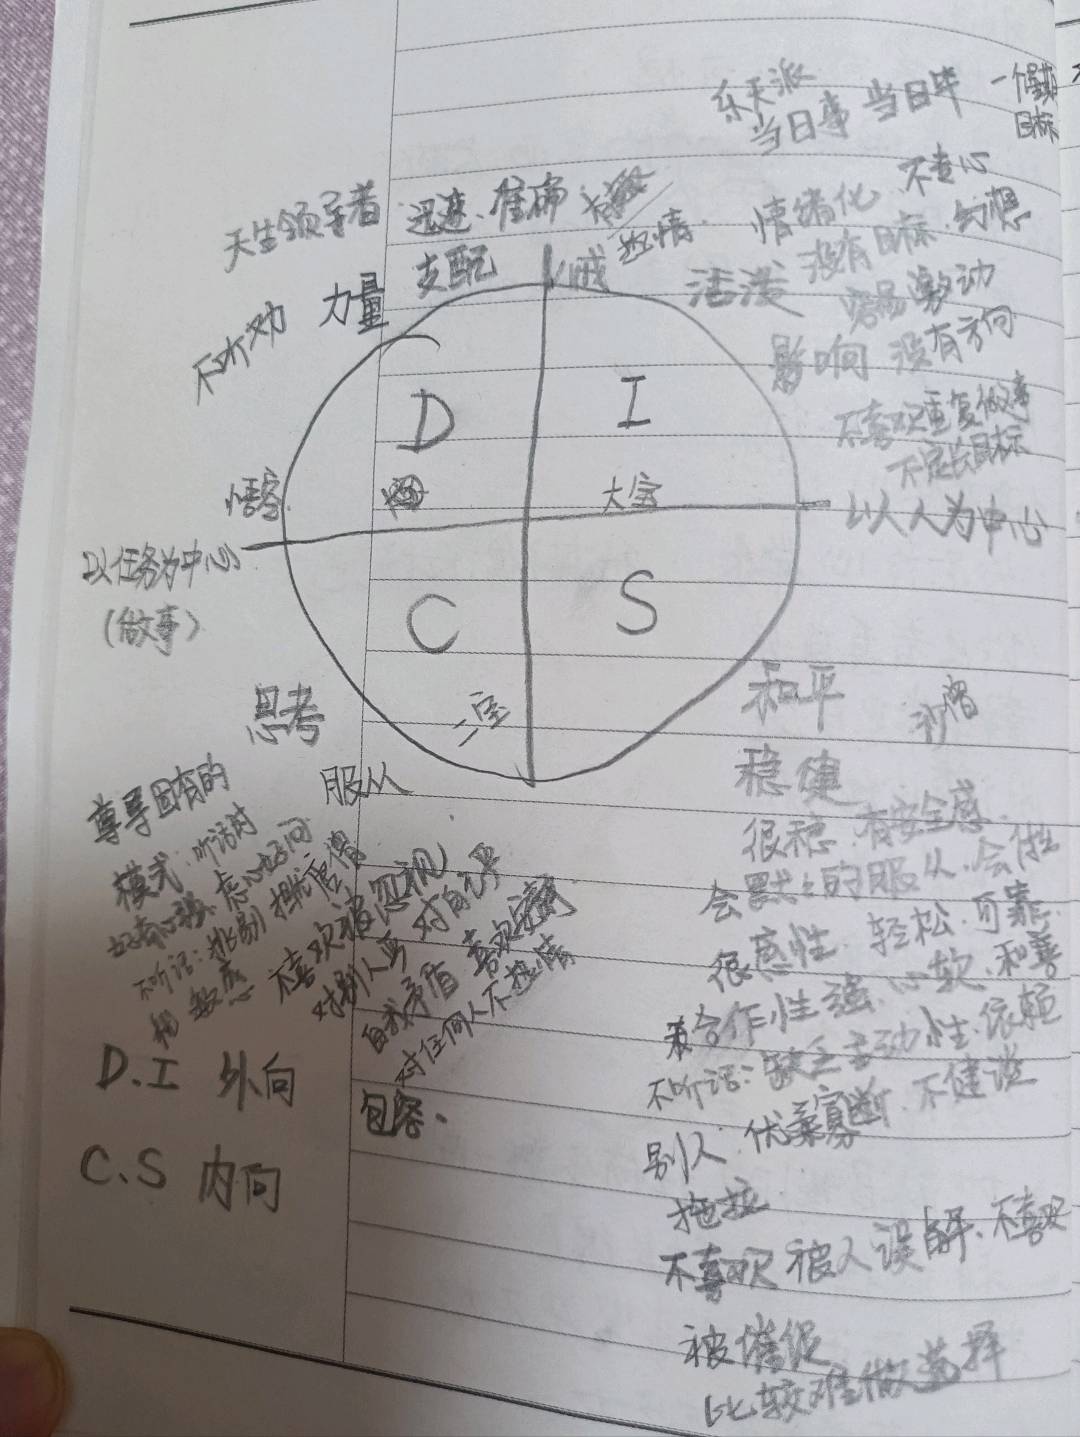 乐天派
当日事 当日毕
目标
天生领导者 迅速、准确
热情
情绪化 不专心
没有目标、幻想
支配
八戒
活泼
容易激动
不听劝 力量
影响 没有方向
不喜欢重复做事
不定长目标
D I
悟空
大宝
以人人为中心
以任务为中心
(做事)
C S
二宝
思考
服从
和平 沙僧
稳健
很稳、有安全感
会默默的服从、会
很感性 轻松、可靠
合作性强、心软、和善
不听话:缺乏主动性、依赖
别人、优柔寡断、不健谈
拖拉
不喜欢被人误解、不喜欢
被催促
比较难做选择
尊导固有的
模式、听话时
不听话:挑剔
敏感
不喜欢被忽视
自我矛盾
对任何人不热情
包容、
D.I 外向
C、S 内向